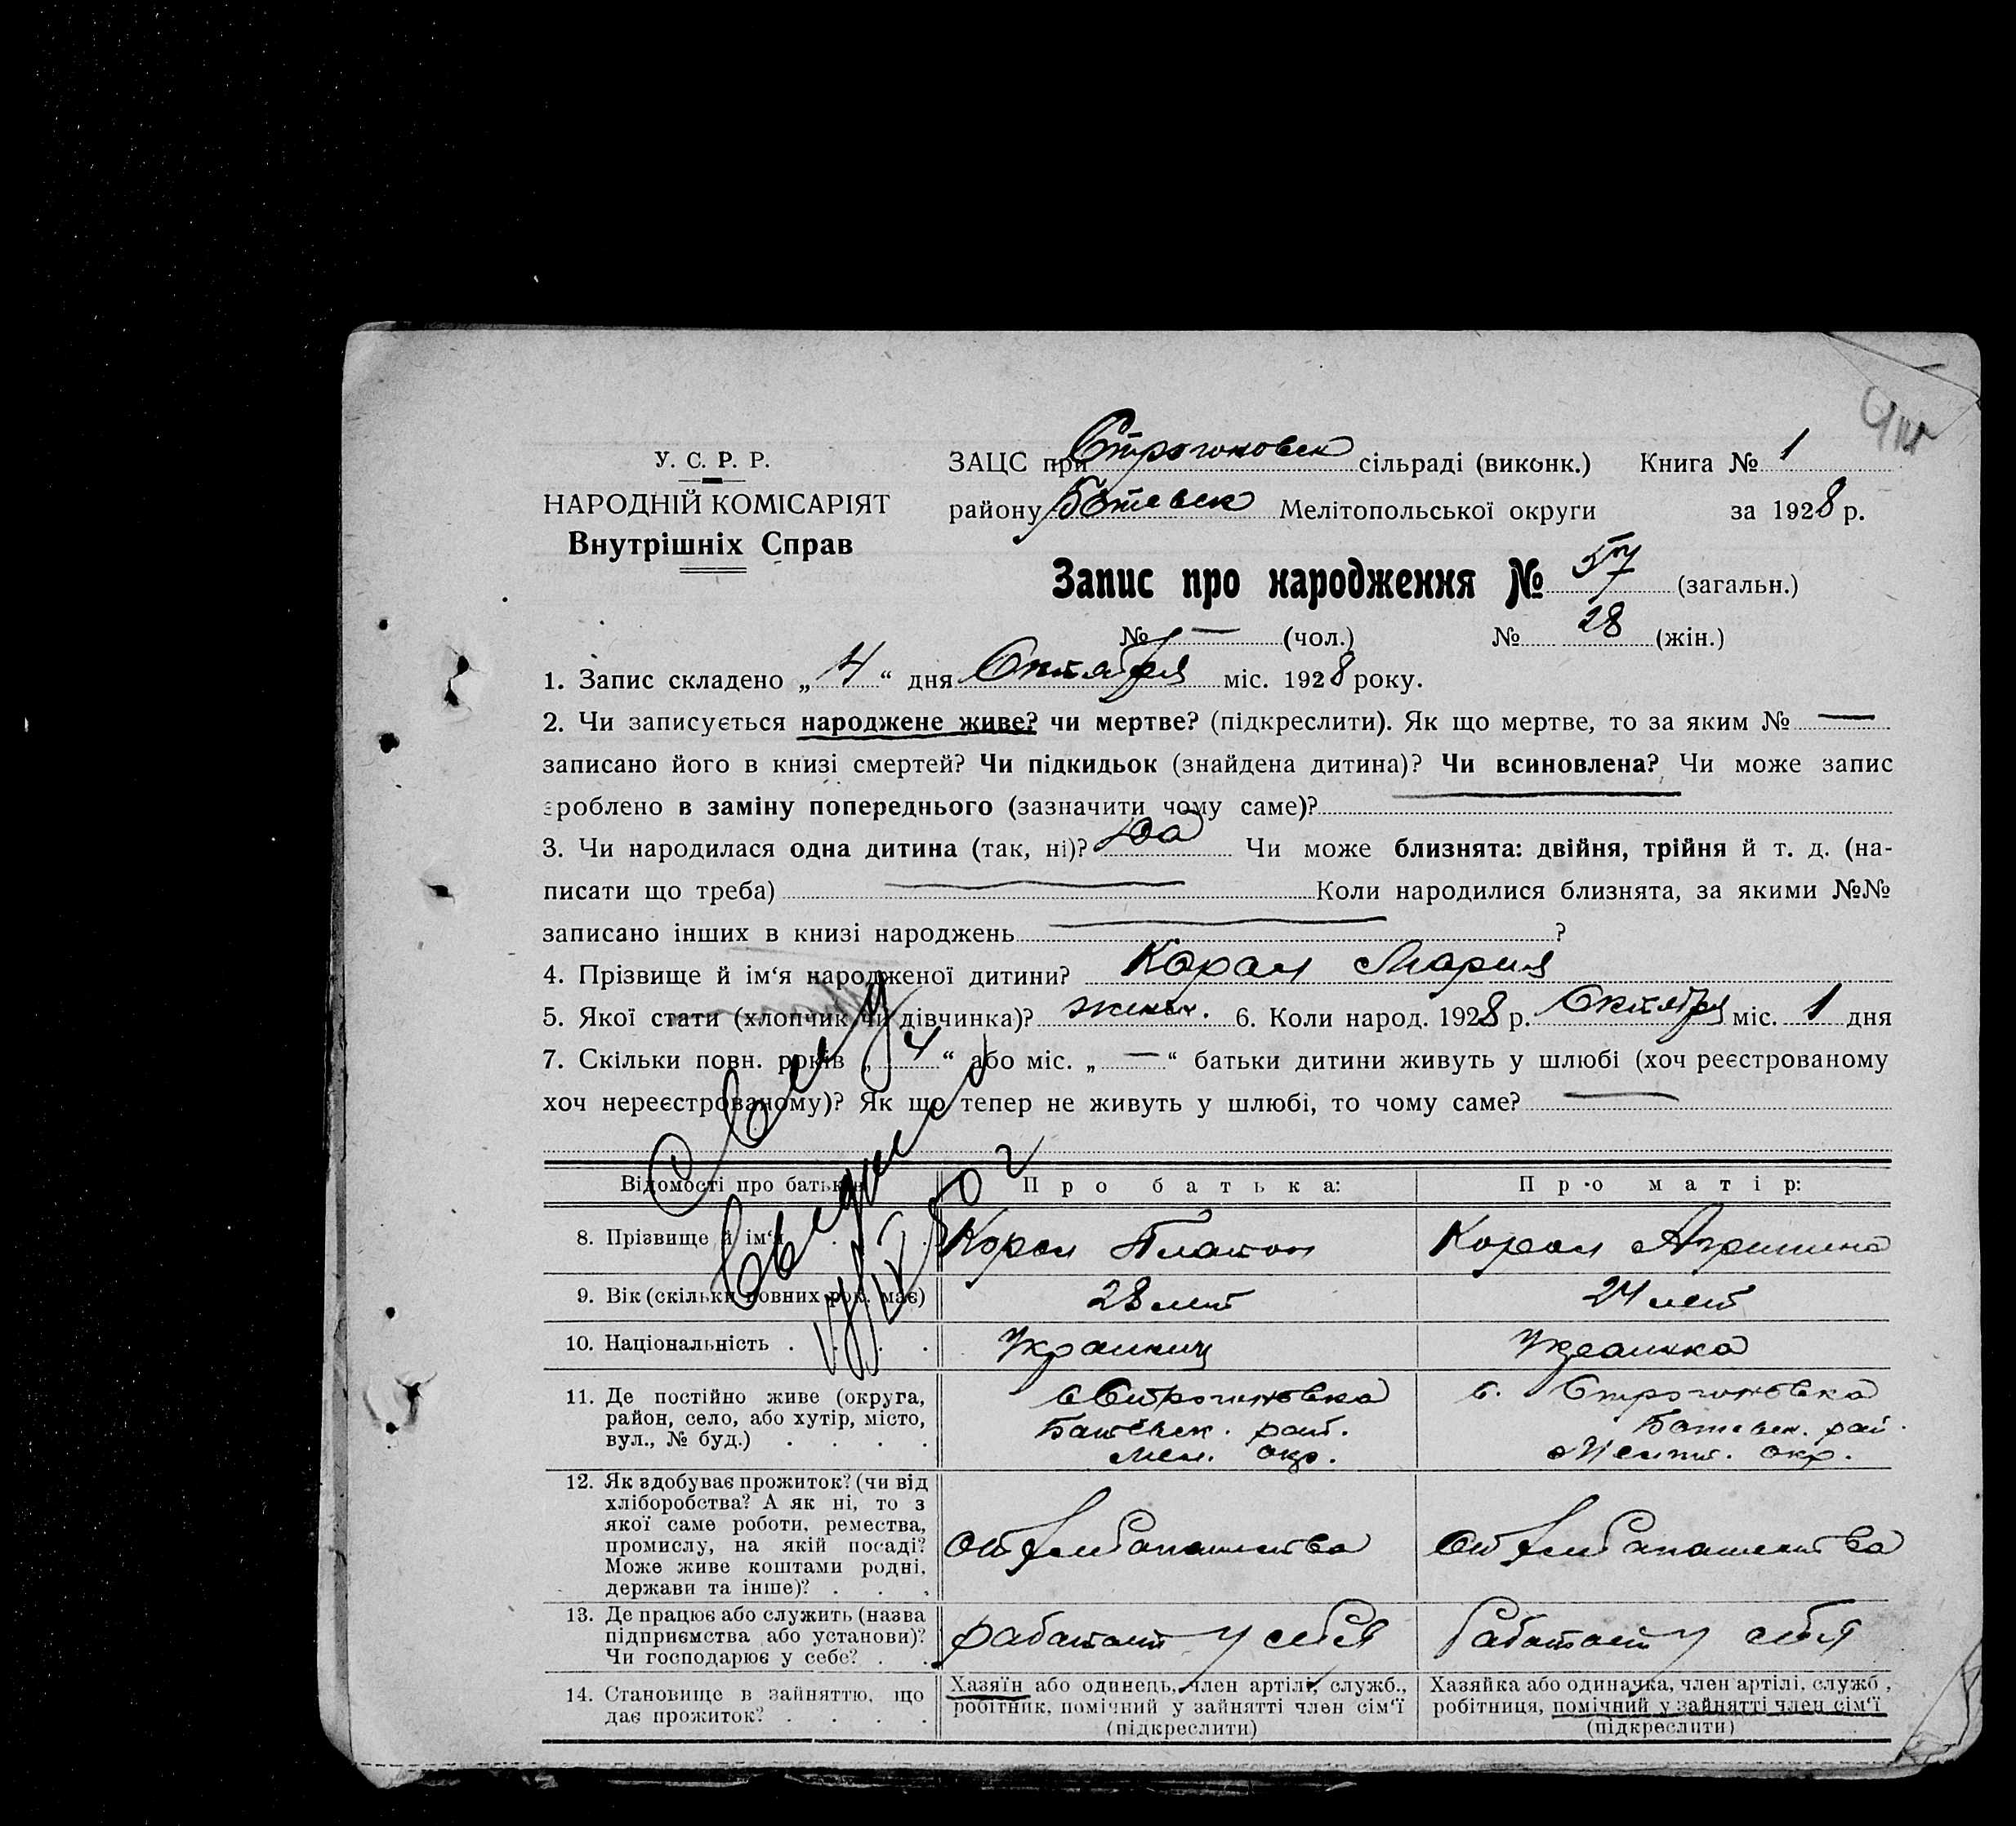 У. С. Р. Р.
НАРОДНІЙ КОМІСАРІЯТ
Внутрішніх Справ
ЗАЦС при Строгоновск сільраді (виконк.) Книга № 1
району Ботевск Мелітопольської округи за 1928 р.
Запис про народження № 57 (загальн.)
№ — (чол.) № 28 (жін.)
1. Запис складено „ 4 “ дня Октября міс. 1928 року.
2. Чи записується народжене живе? чи мертве? (підкреслити). Як що мертве, то за яким № —
записано його в книзі смертей? Чи підкидьок (знайдена дитина)? Чи всиновлена? Чи може запис
зроблено в заміну попереднього (зазначити чому саме)?
3. Чи народилася одна дитина (так, ні)? Да Чи може близнята: двійня, трійня й т. д. (на-
писати що треба) — Коли народилися близнята, за якими №№
записано інших в книзі народжень — ?
4. Прізвище й ім‘я народженої дитини? Мария
5. Якої стати (хлопчик чи дівчинка)? женск. 6. Коли народ. 1928 р. Октября міс. 1 дня
7. Скільки повн. років „ 4 “ або міс. „ — “ батьки дитини живуть у шлюбі (хоч реєстрованому
хоч нереєстрованому)? Як що тепер не живуть у шлюбі, то чому саме? —
Відомості про батьків Про батька: Про матір:
8. Прізвище й ім‘я . . . Платон
9. Вік (скільки повних рок. має) 28 лет 24 лет
10. Національність . . . . Украинец Украинка
11. Де постійно живе (округа, с Строгоновка с. Строгоновка
район, село, або хутір, місто, Ботевск. рай. Ботевск. рай.
вул., № буд.) . . . . Мел. окр. Мелит. окр.
12. Як здобуває прожиток? (чи від
хліборобства? А як ні, то з
якої саме роботи, ремества,
промислу, на якій посаді? От хлебопашества От хлебопашества
Може живе коштами родні,
держави та інше)? . . .
13. Де працює або служить (назва
підприємства або установи)? работает у себя работает у себя
Чи господарює у себе? . .
14. Становище в зайняттю, що
дає прожиток? . . . .
Хазяїн або одинець, член артілі, служб.,
робітник, помічний у зайнятті член сім‘ї
(підкреслити)
Хазяйка або одиначка, член артілі, служб.,
робітниця, помічний у зайнятті член сім‘ї
(підкреслити)